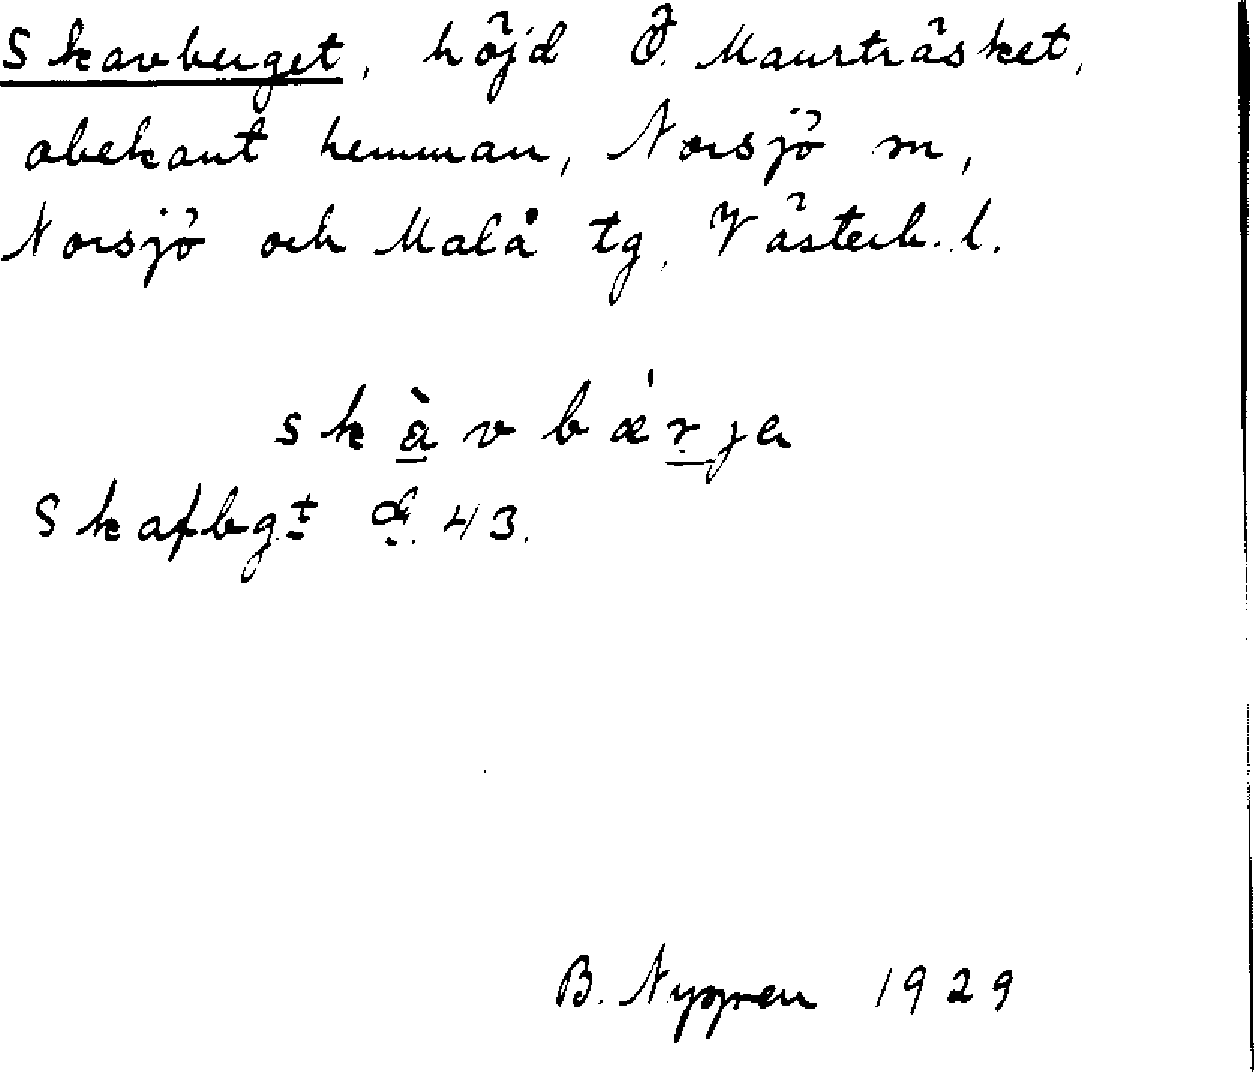 Skavberget, höjd Ö. Maurträsket,
obekant hemman, Norsjö sn,
Norsjö och Malå tg, Västerb. l.
skàvbǽrja
Skafbgt 43.
B. Nygren 1929